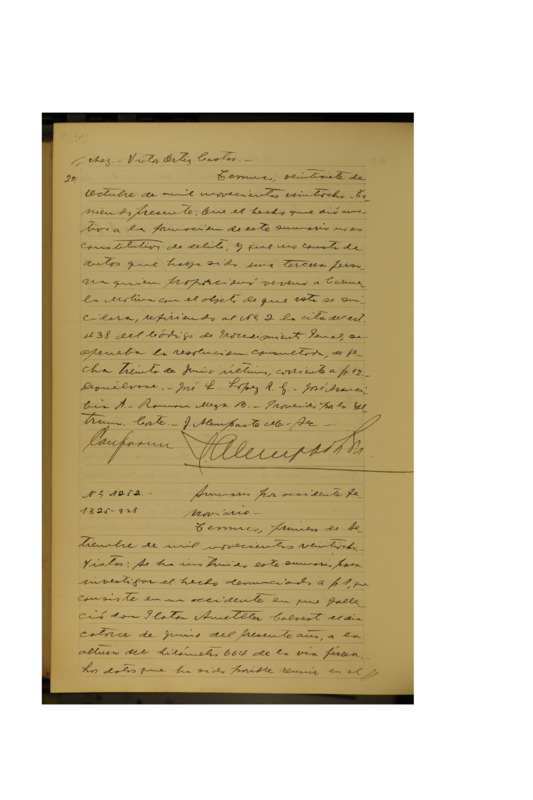 chez. - Victor Ortiz Castro. -
2º Temuco, veintisiete de
octubre de mil novecientos veintiocho. Te-
niendo presente: Que el hecho que dió mo-
tivo a la formacion de este sumario no es
constitutivo de delito, y que no consta de
autos que haya sido una tercera perso-
na quien proporcionó veneno a
la Molina con el objeto de que esta se sui-
cidara, refiriendo al Nº 2 la cita del art.
438 del Código de Procedimiento Penal, se
aprueba la resolucion consultada, de fe-
cha treinta de junio último, corriente a f.
Devuélvase. - José L. López R. G. -
A. - Roman Mega B. - Proveido por la Iltma.
Corte. - J Almparte - Sec -
Conforme
Nº 1252. - Sumario por accidente fe-
1325-928 rroviario -
Temuco, primero de Se-
tiembre de mil novecientos veintiocho. -
Vistos: Se ha instruido este sumario, para
investigar el hecho denunciado a f. 1, que
consiste en un accidente en que falle-
ció don Platon el dia
catorce de junio del presente año, a la
altura del kilómetro 664 de la via férrea.
Los datos que ha sido posible reunir en el //